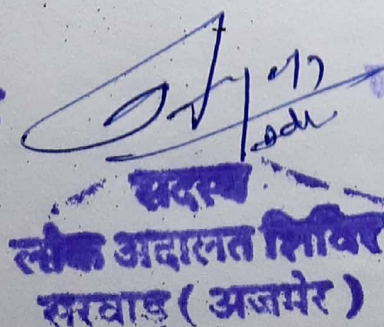 सदस्य
लोक अदालत शिविर
सरवाड ( अजमेर )